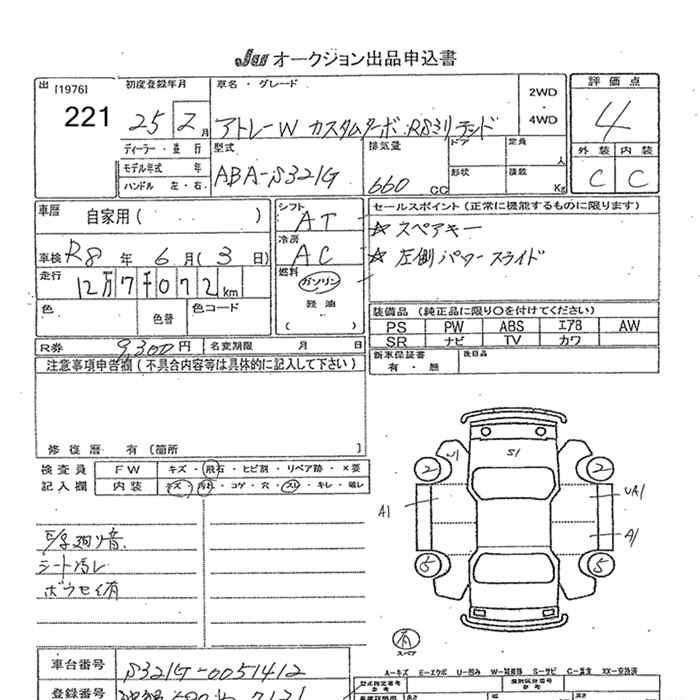 JU オークション出品申込書
出 [1976]
221
初度登録年月
25 年 2 月
車名・グレード
アトレーW カスタムターボ RSリミテッド
2WD
・
4WD
評価点
4
外装 内装
C C
ディーラー・並行
モデル年式 年
ハンドル 左・右
型式
ABA-S321G
排気量
660 CC
ドア
定員
人
形状
積載
Kg
車歴
自家用( )
車検 R8 年 6 月 ( 3 日)
走行
12万7千072 km
色
色替
色コード
シフト
AT
冷房
AC
燃料
ガソリン
軽油
( )
セールスポイント (正常に機能するものに限ります)
☆ スペアキー
☆ 左側パワースライド
装備品 (純正品に限り○を付けてください)
PS PW ABS エアB AW
SR ナビ TV カワ
新車保証書
有・無
後日品
R券 9,300円 名変期限 月 日
注意事項申告欄(不具合内容等は具体的に記入して下さい)
修復歴 有 [箇所 ]
検査員 FW キズ・飛石・ヒビ割・リペア跡・×要
記入欄 内装 キズ・汚れ・コゲ・穴・スレ・キレ・破レ
シート汚レ
ボウセイ有
2 W1 S1 2
A1 UA1
A1
6 5
有
スペア
A-キズ E-エクボ U-凹み W-補修跡 S-サビ C-腐食 XX-交換済
車台番号 S321G-0051412
登録番号